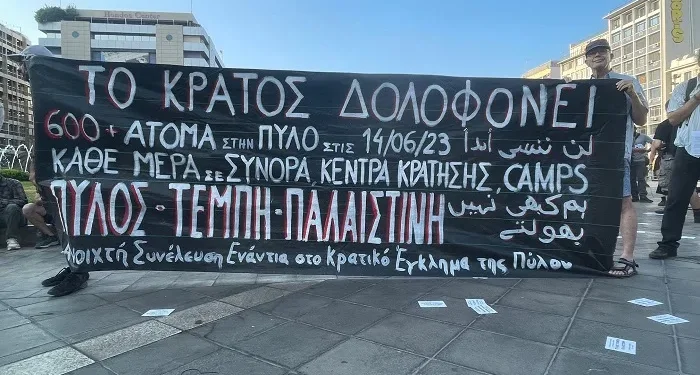 ΤΟ ΚΡΑΤΟΣ ΔΟΛΟΦΟΝΕΙ
600+ ΑΤΟΜΑ ΣΤΗΝ ΠΥΛΟ ΣΤΙΣ 14/06/23 لن ننسى أبداً
ΚΑΘΕ ΜΕΡΑ ΣΕ ΣΥΝΟΡΑ, ΚΕΝΤΡΑ ΚΡΑΤΗΣΗΣ, CAMPS
ΠΥΛΟΣ · ΤΕΜΠΗ · ΠΑΛΑΙΣΤΙΝΗ ہم کبھی نہیں
بھولیں
Ανοιχτή Συνέλευση Ενάντια στο Κρατικό Έγκλημα της Πύλου